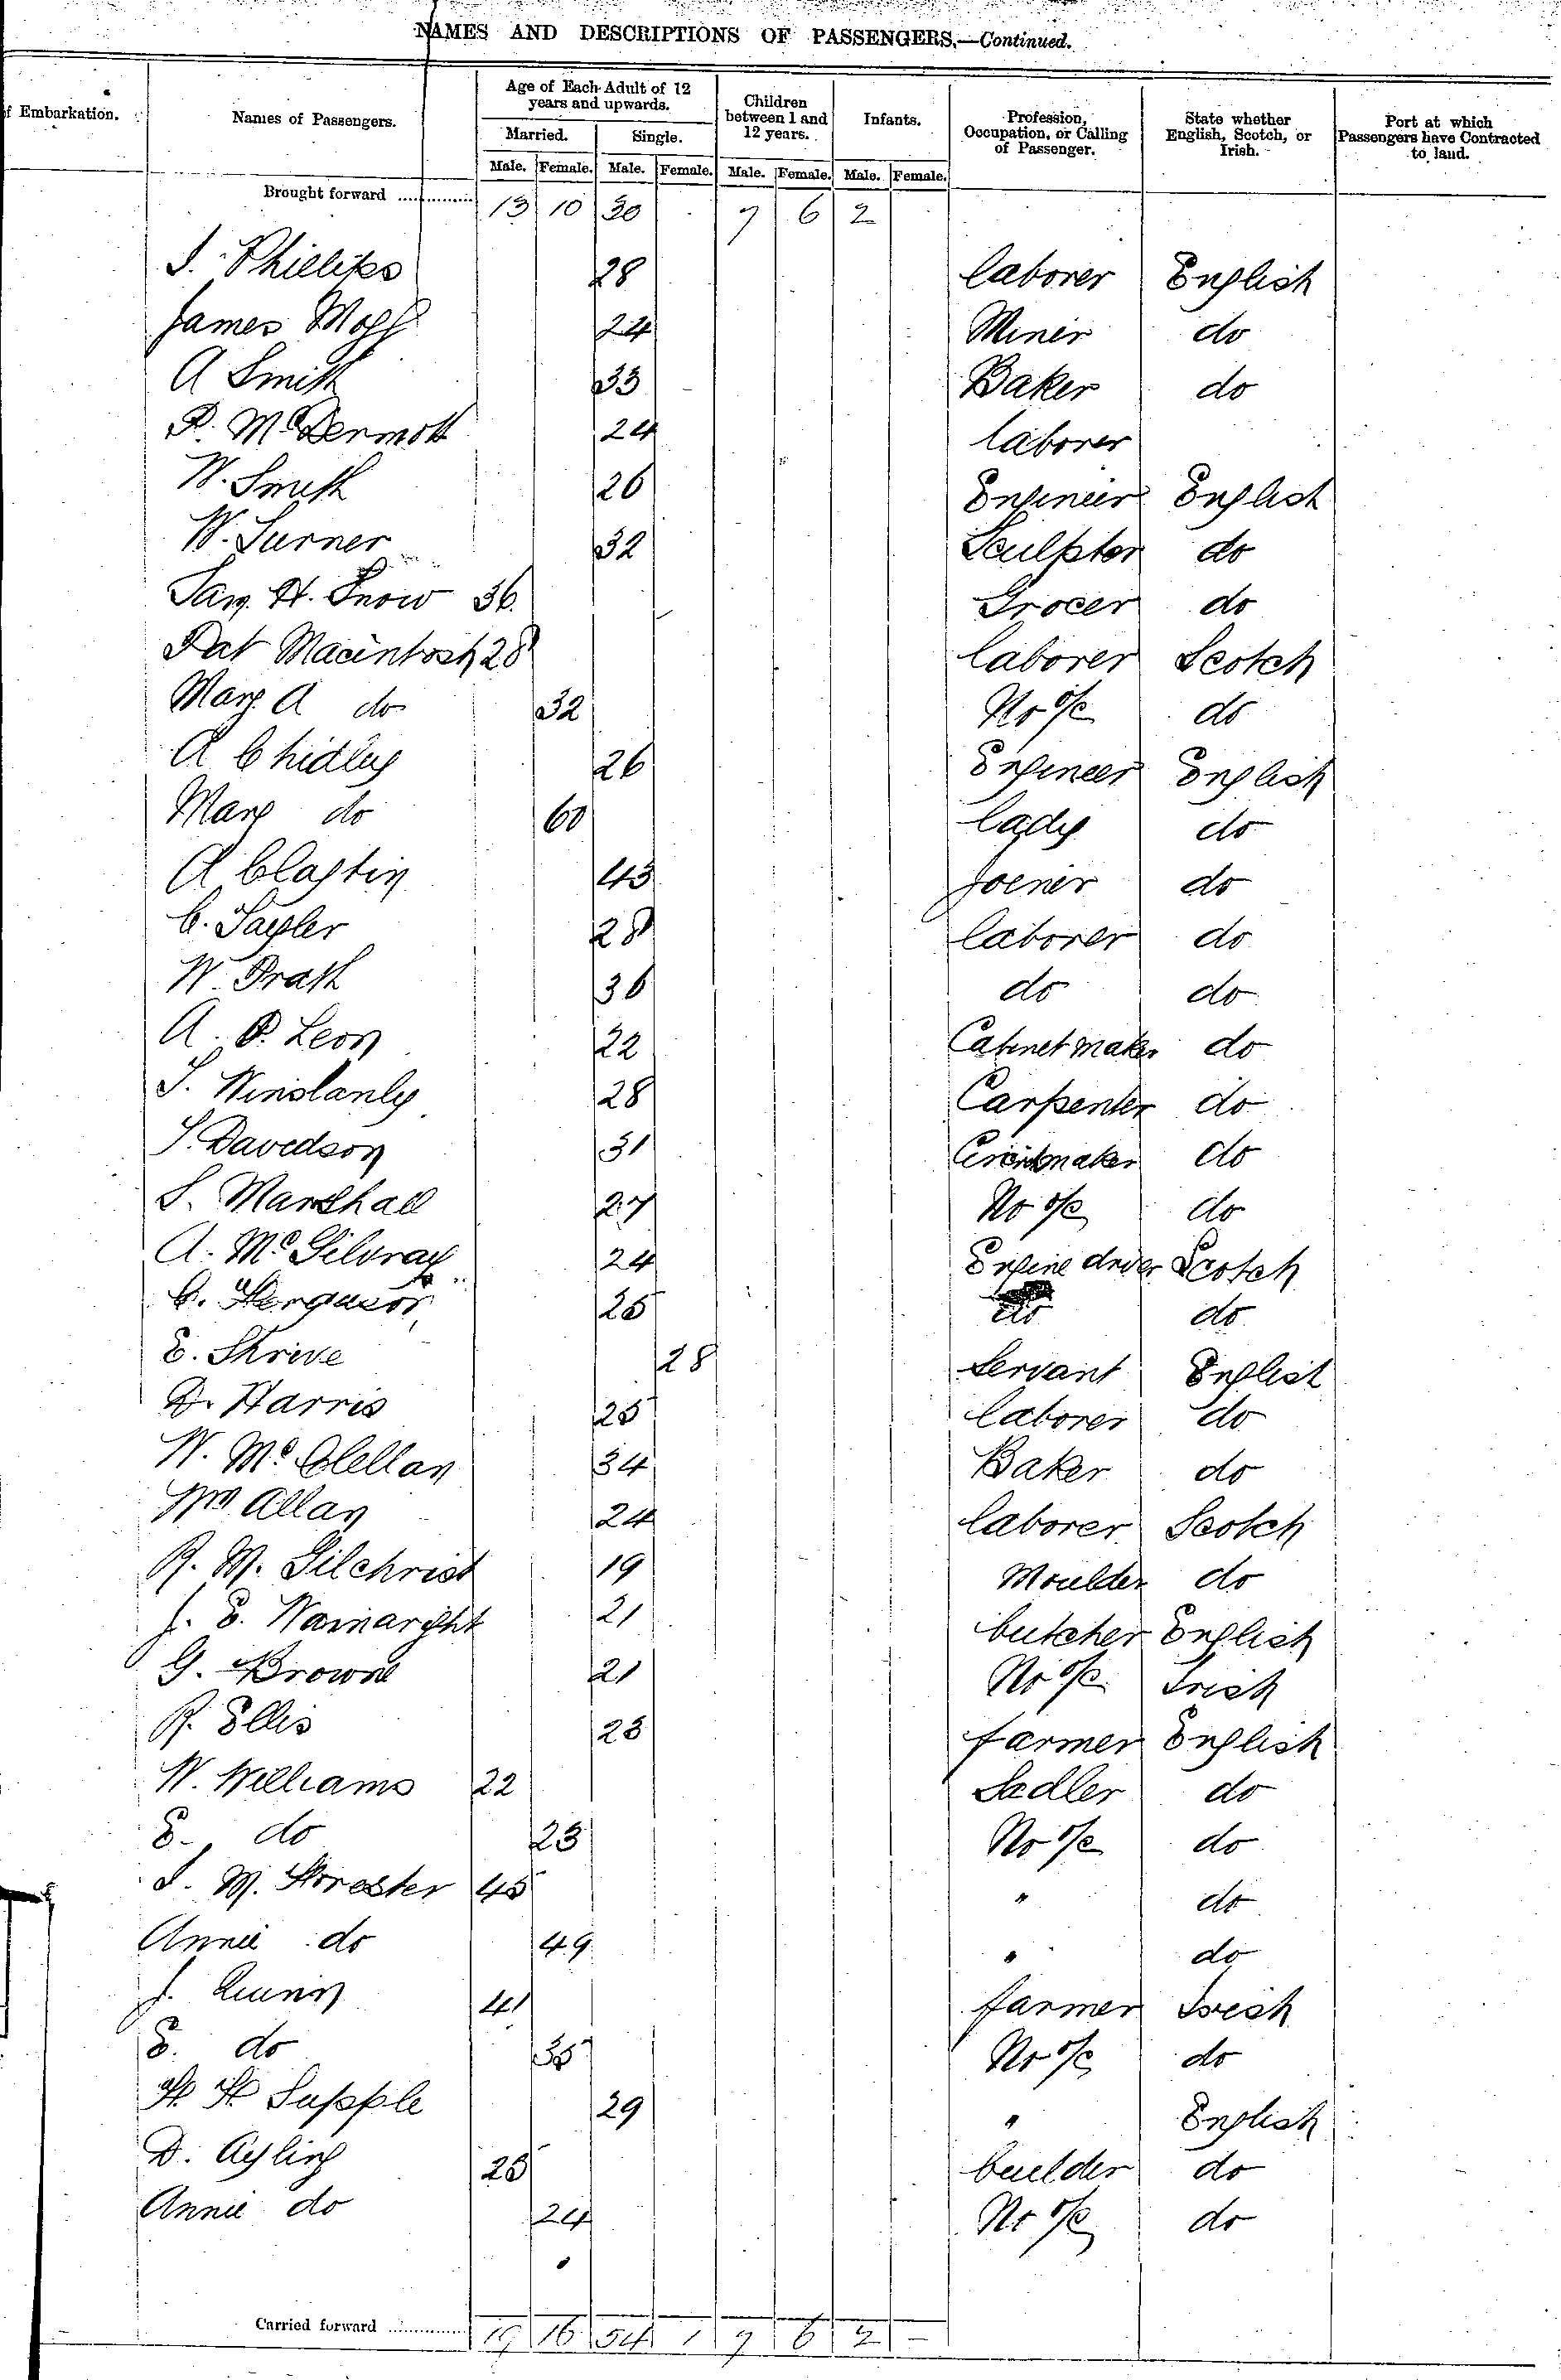 NAMES AND DESCRIPTIONS OF PASSENGERS.—Continued.
f Embarkation. Names of Passengers. Age of Each Adult of 12 years and upwards. Children between 1 and 12 years. Infants. Profession, Occupation, or Calling of Passenger. State whether English, Scotch, or Irish. Port at which Passengers have Contracted to land.
Married. Single.
Male. Female. Male. Female. Male. Female. Male. Female.
Brought forward 13 10 30 7 6 2
J. Phillips 28 laborer English
James 24 Miner do
A Smith 33 Baker do
P. McDermott 24 laborer
W. Smith 26 Engineer English
W. Turner 32 Sculptor do
Jas. H. Snow 36 Grocer do
Pat Macintosh 28 laborer Scotch
Mary A do 32 No o/c do
A Chidley 26 Engineer English
Mary do 60 lady do
A 43 Joiner do
C. Tayler 28 laborer do
W. Prath 36 do do
A. P. Leon 22 Cabinet maker do
J. Winstanly 28 Carpenter do
J. Davidson 31 do
S. Marshall 27 No o/c do
A. McGilvray 24 Engine driver Scotch
C. Ferguson 25 do do
E. Shrive 28 Servant English
D. Harris 25 laborer do
W. McClellan 34 Baker do
Wm Allan 24 laborer Scotch
R. W. Gilchrist 19 Moulder do
J. E. Wainaright 21 butcher English
G. Brown 21 No o/c Irish
R. Ellis 23 farmer English
W. Williams 22 Sadler do
E. do 23 No o/c do
J. W. Forester 45 " do
Annie do 49 " do
J. Quinn 41 farmer Irish
E. do 35 No o/c do
H H Supple 29 " English
D. Ayling 25 builder do
Annie do 24 No o/c do
Carried forward 19 16 54 1 7 6 2 —